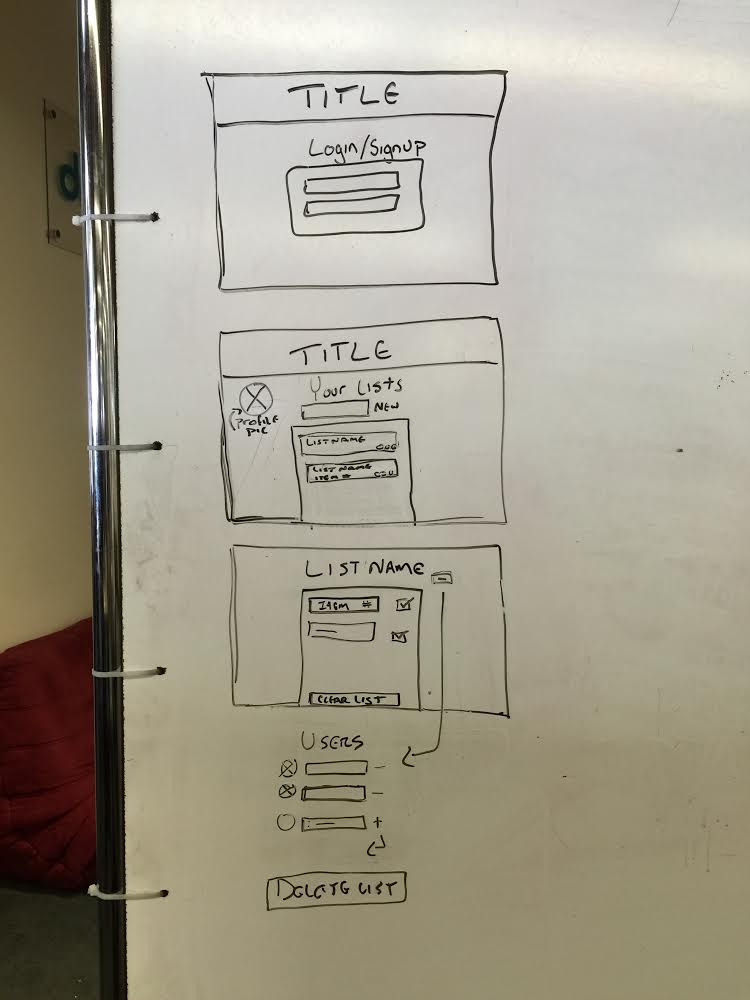 TITLE
Login/Signup
TITLE
Your Lists
NEW
PROFILE
PIC
LIST NAME
LIST NAME
ITEM #
LIST NAME
ITEM #
CLEAR LIST
USERS
DELETE LIST